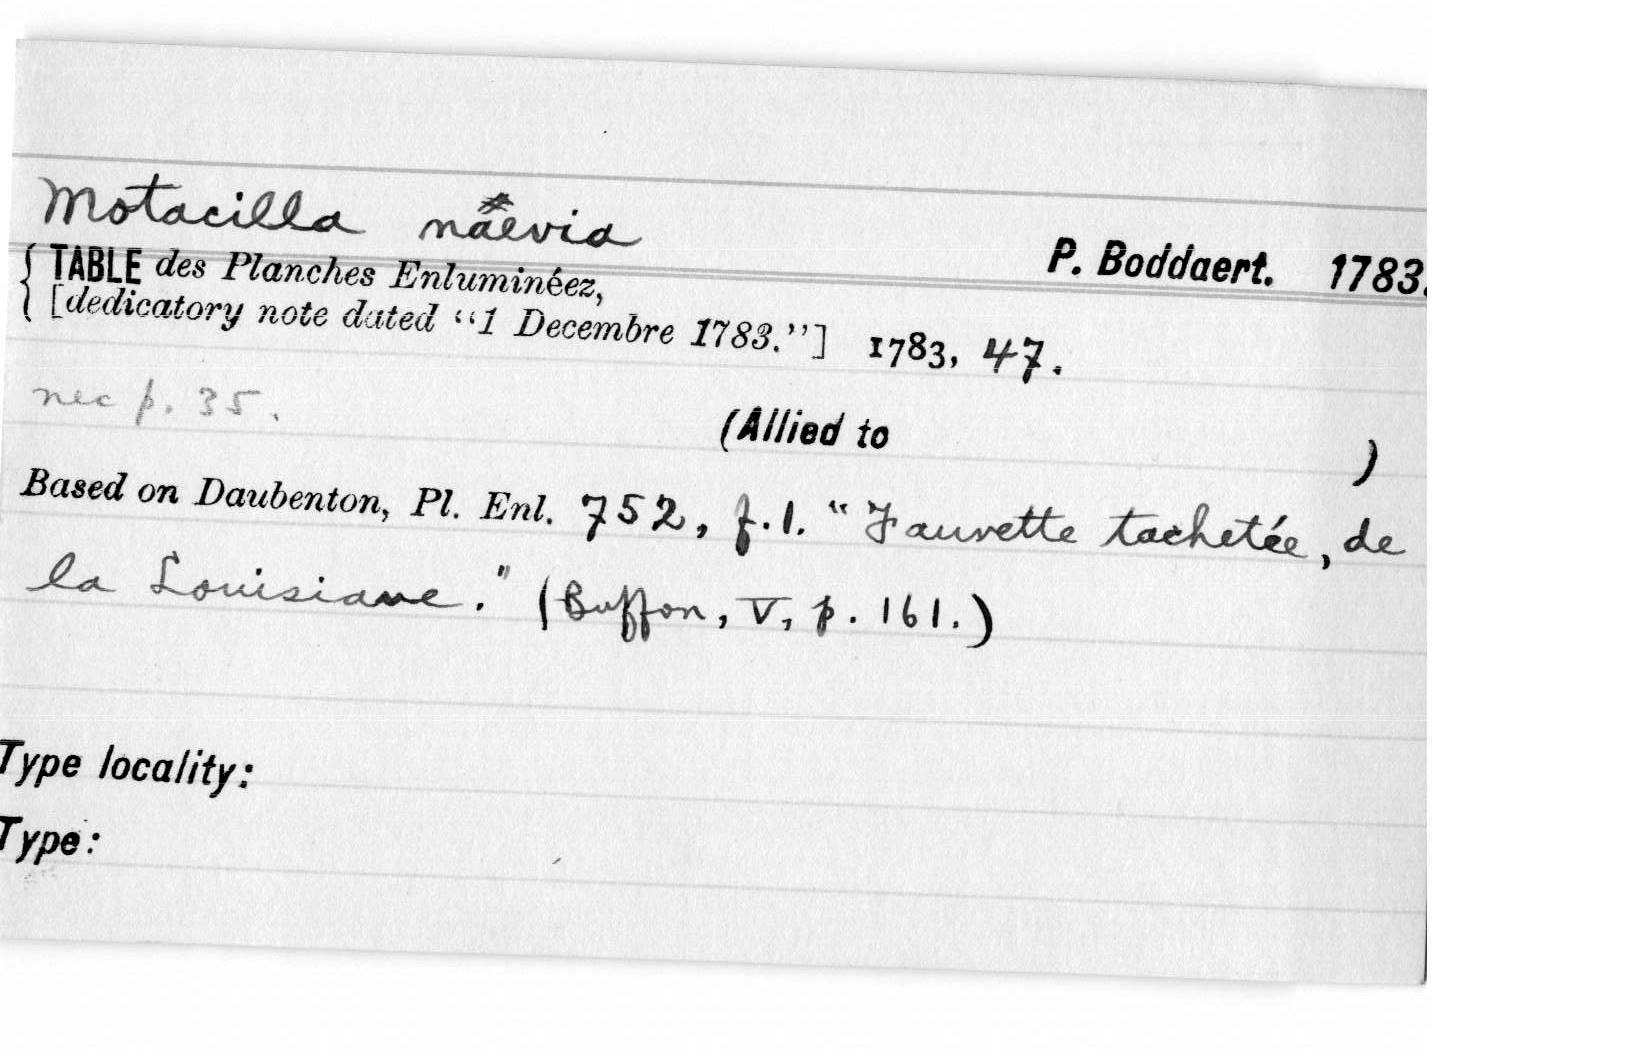 Motacilla naevia
P. Boddaert. 1783.
{ TABLE des Planches Enluminéez,
{ [dedicatory note dated “1 Decembre 1783.”] 1783, 47.
nec p. 35.
(Allied to )
Based on Daubenton, Pl. Enl. 752, f.1. “Fauvette tachetée, de
la Louisiane." (Buffon, V, p. 161.)
Type locality:
Type: